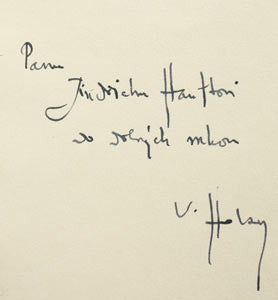 Panu
Jindřichu Hauftovi
do dobrých rukou
V. Holan